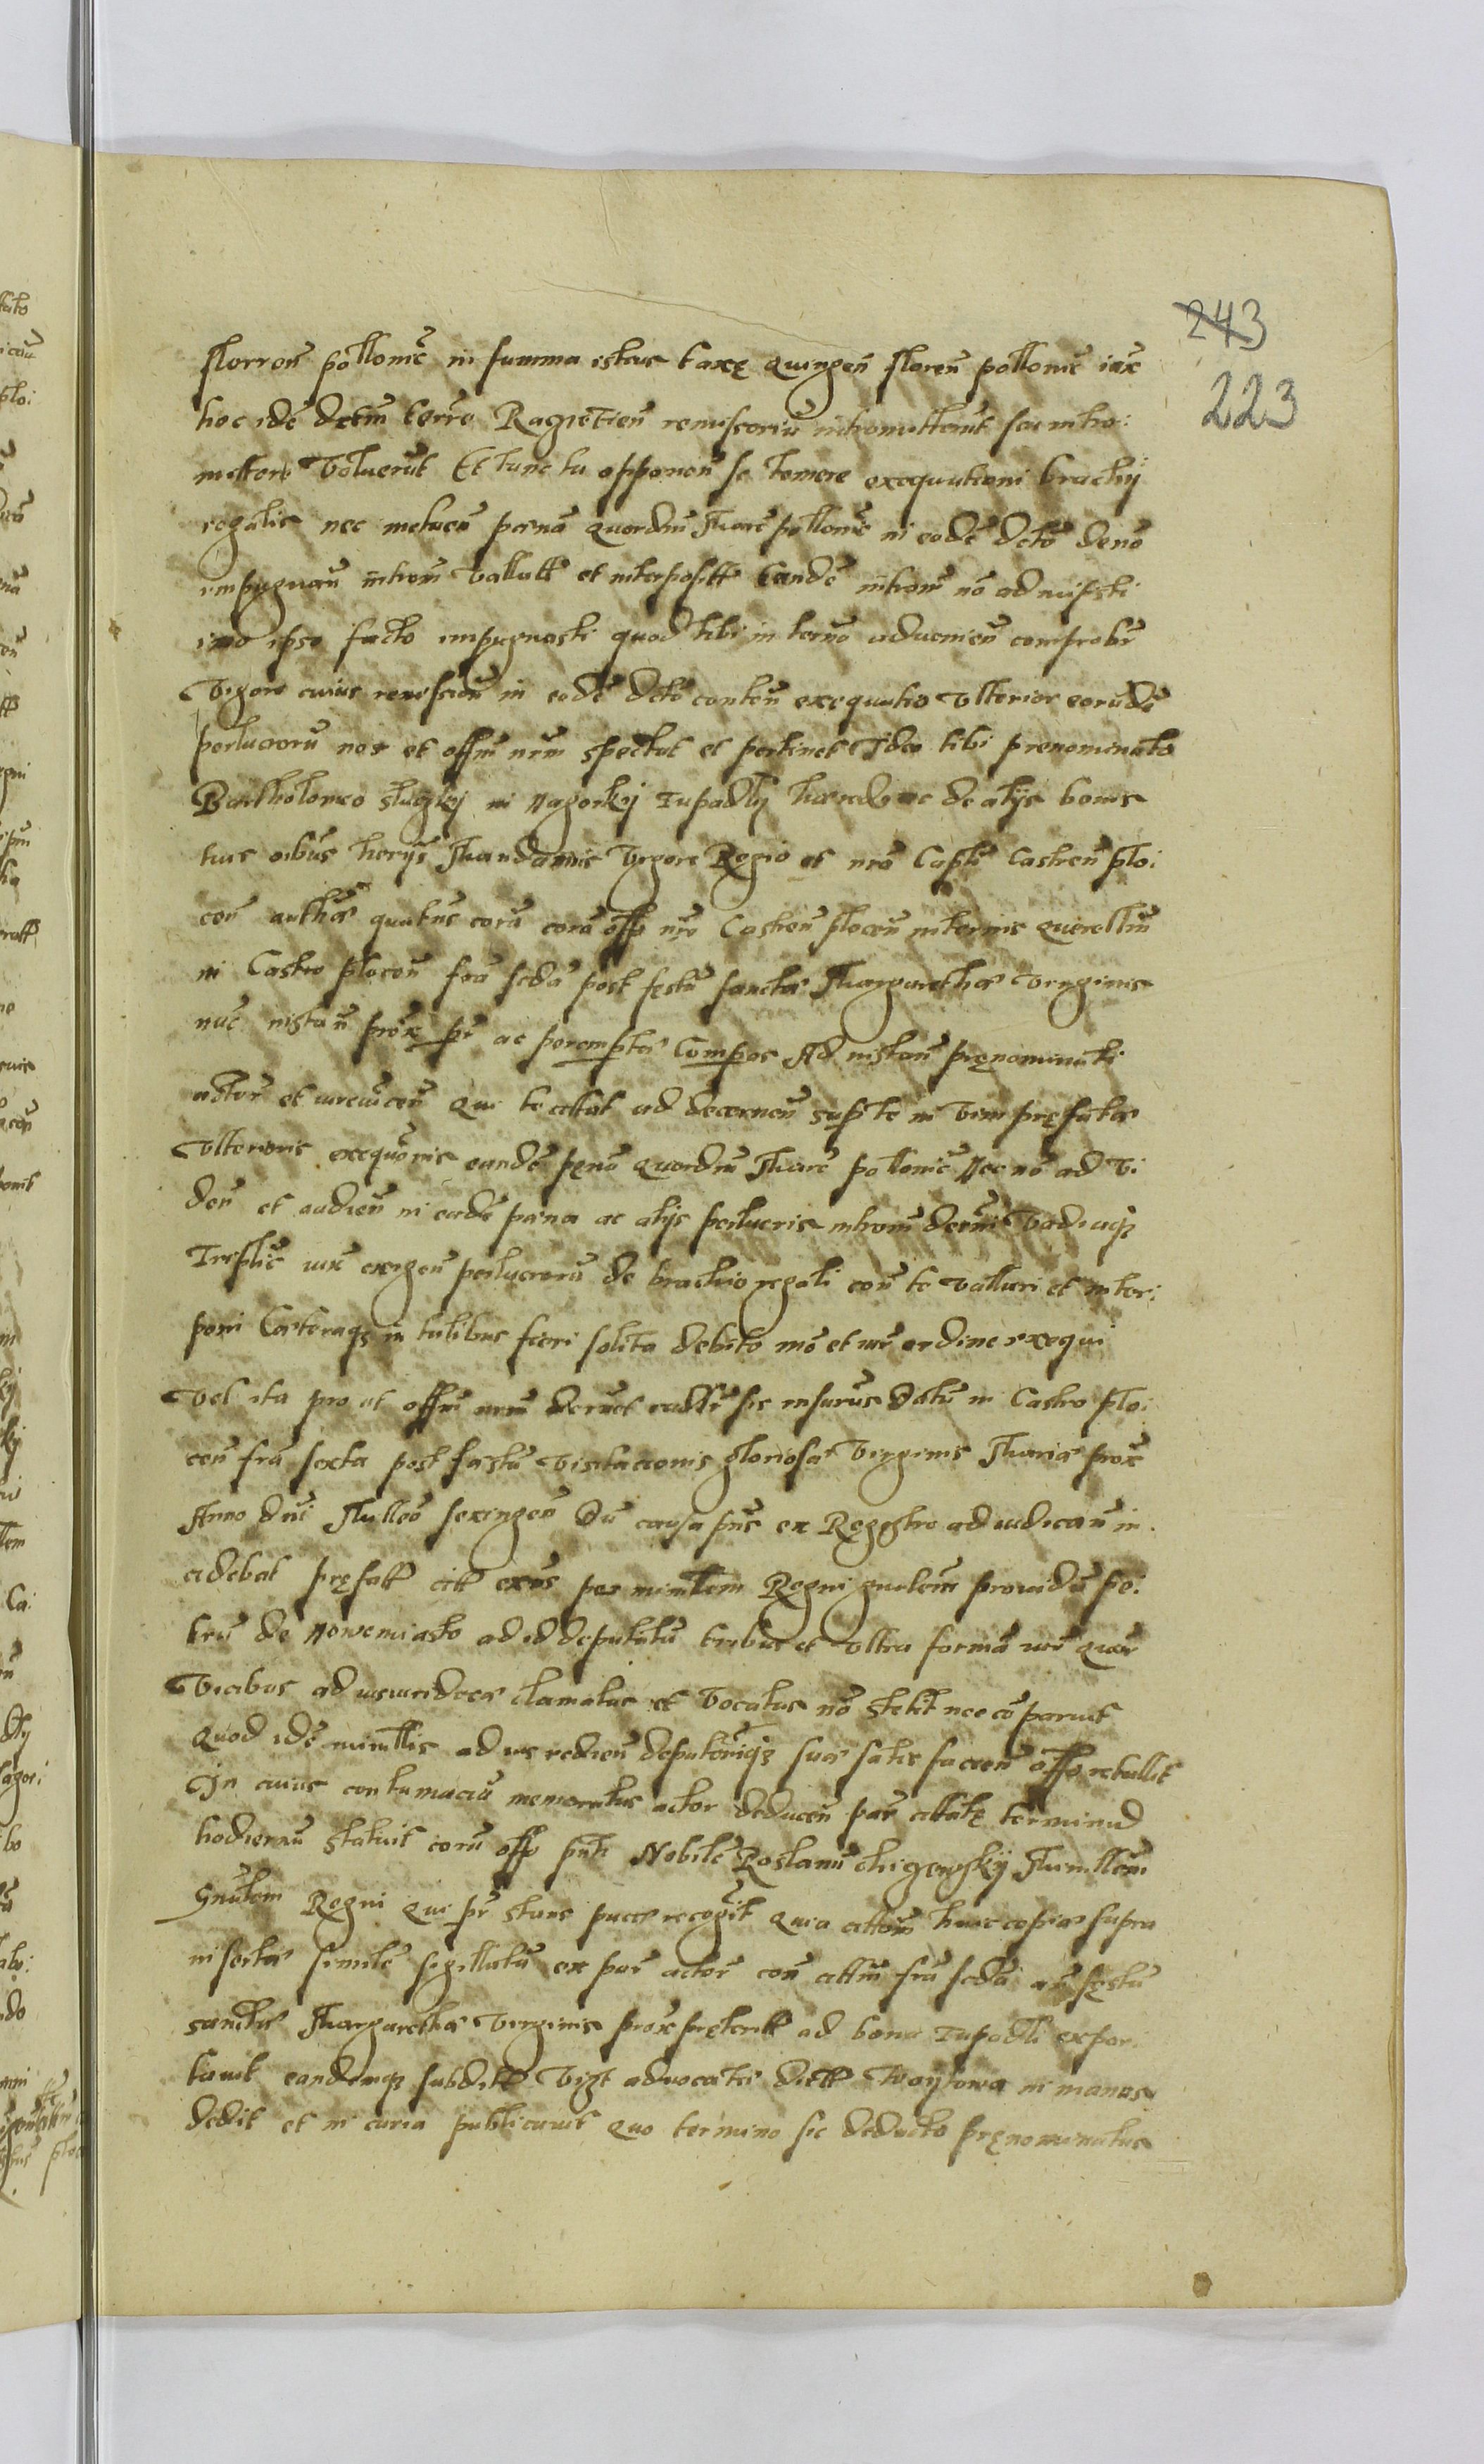 243
223
florren̄ pollonic̄ in summa istius taxę quingen̄ floren̄ pollonic̄ iux̄
hoc idē dctm̄ terre Ragietien̄ remissoriū intromitterūt seu intro:
mittere voluerūt Et tunc tu opponen̄ se temere exequutioni brachij
regalis nec metuen̄ pœnā quordm̄ Marc̄ pollonic̄ in eodē dcto deno
impugnan̄ introm̄ vallatt et interposit eandē introm̄ nō admisisti
imo ipso facto impugnasti quod tibi in termō aduenien̄ comprobr̄
Vigore cuius remission̄ in eodē dcto conten̄ exequutio vlterior eorūdē
perlucrorū nos et offm̄ nrm̄ spectat et pertinet Ideo tibi prenominato
Bartholomeo Sluczkij in Nagorkij Tupadly hæredi ac de alijs bonis
tuis oibus herijs Mandamus Vigore Regio et nrō Capti Castren̄ plo:
cen̄ authē quatus corā corā offo nr̄o Castren̄ plocen̄ in terminis querellm̄
in Castro plocen̄ fria scda post festū sanctæ Margarethæ virginis
nuc instan̄ prox̄ pr̄ ac peremptē Compas Ad instan̄ pręnominati
actor̄ et iureuicen̄ qui te cittat ad decernen̄ sup te in vim pręfatæ
Vlterioris exequōnis eandē pęnā quordm̄ Marc̄ pollonic̄ Nec nō ad vi
den̄ et audien̄ in eadē pæna ac alijs perlucris introm̄ dcrm̄ vadiaqz
Triplic̄ iux̄ exigen̄ perlucrorū de brachio regali con̄ te vallari et inter:
poni Cæteraqz in talibus fieri solita debito mō et iur̄ ordine exequi
Vel ita pro ut offm̄ nrm̄ decruet caddr̄ sis insurus Datū in Castro plo:
cen̄ fria sexta post festū Visitacionis gloriosæ Virginis Mariæ prox̄
Anno dni Mylleō sexingen̄ Du causa pns̄ ex Regestro ad iudican̄ in:
cidebat pręfatt citt exns̄ per mintlem Regni gnalem prouidū Pe:
trū de Nowemiasto ad id deputatū tribus et vltra formā iur̄ quar
Vicibus ad iusiuridcea clamatus et vocatus nō stetit nec cōparuit
Quod idē mintlis ad ius redien̄ deputōriqz suæ satis facien̄ offo retullit
In cuius contumaciā memoratus actor deducen̄ par̄ cittatę terminū
hodiernū statuit corā offo pnti Nobilē Roslanū Mintlem̄
Gnalem Regni qui pr̄ stans pucce recogīt quia cittom̄ huic copiæ supra
insertæ similē sigillatū ex par̄ actor̄ con̄ cittm̄ fria scda an̄ fęstū
sanctæ Margarethæ Virginis prox̄ pręteritt ad bona Tupadli expor:
tauit eandemqz subditt vizt aduocatē dictt Woytowa in manus
dedit et in curia publicauit Quo termino sic deducto pręnominatus